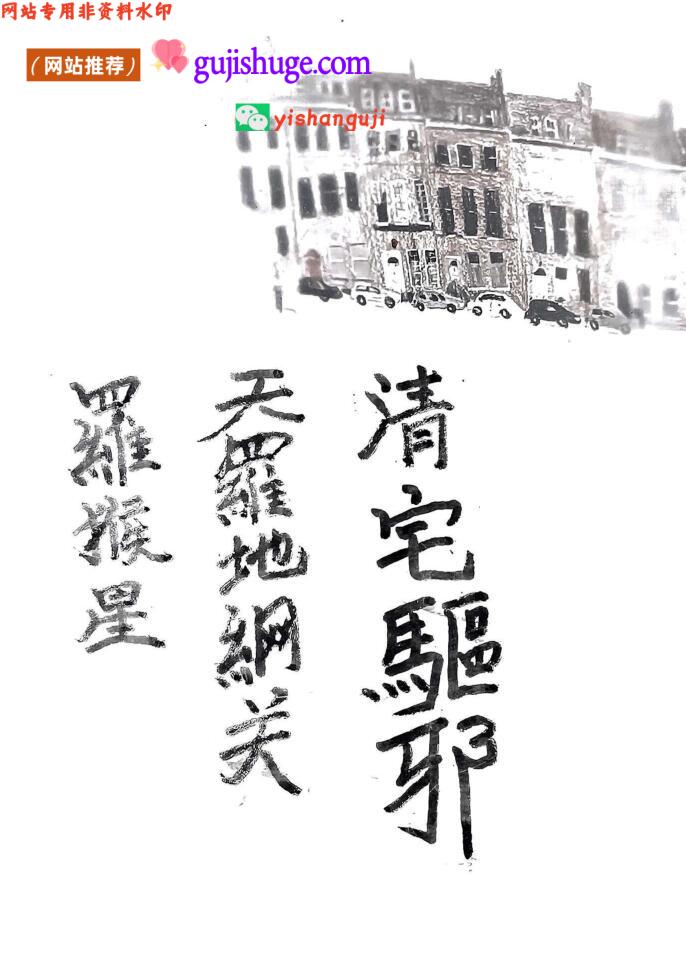 网站专用非资料水印
（网站推荐） gujishuge.com
yishanguji
清宅驅邪
天羅地網关
羅猴星